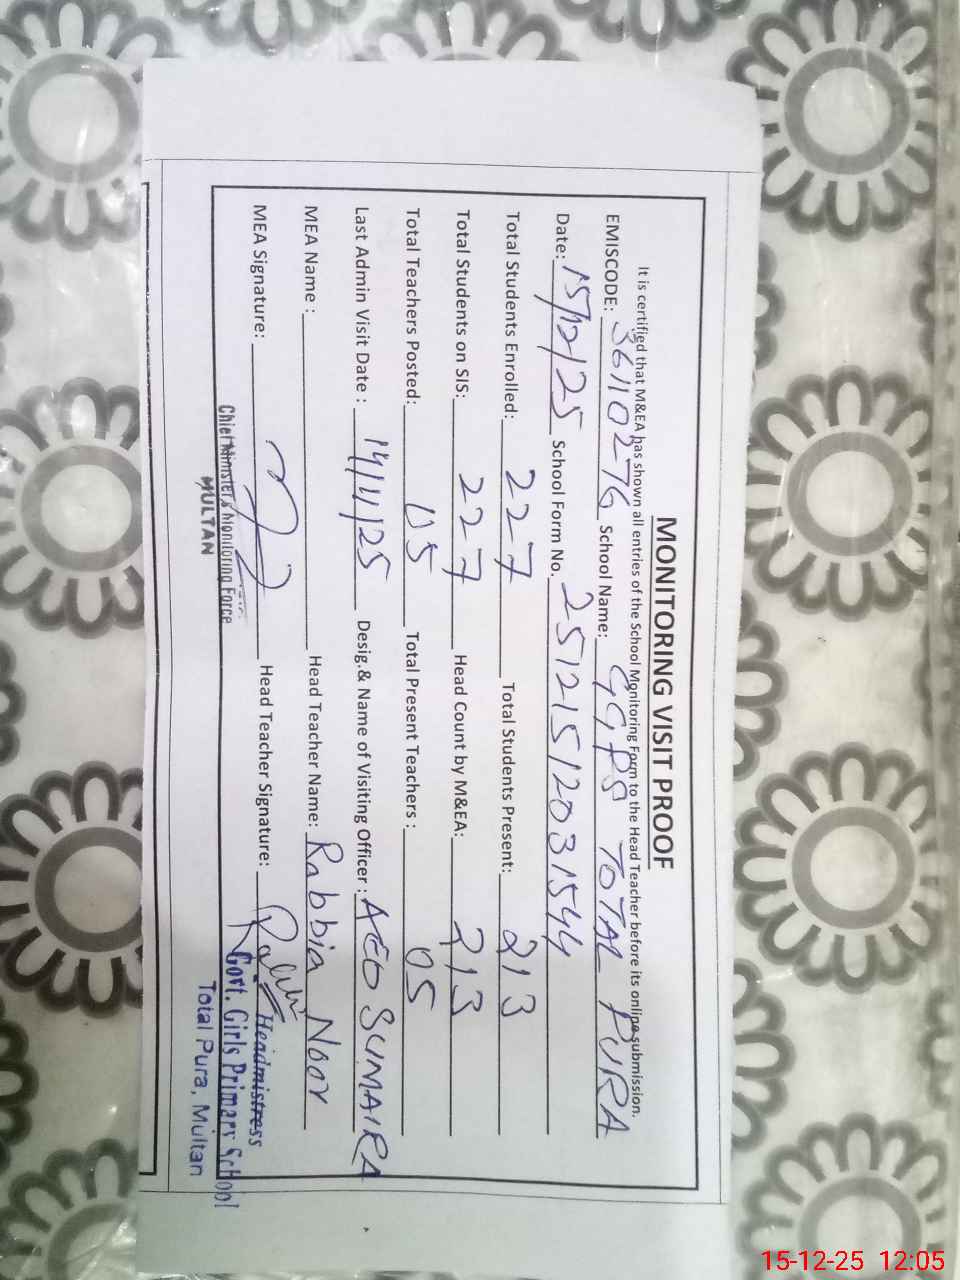 MONITORING VISIT PROOF
It is certified that M&EA has shown all entries of the School Monitoring Form to the Head Teacher before its online submission.
EMISCODE: 36110276 School Name: GGPS TOTAL PURA
Date: 15/12/25 School Form No. 25121512031544
Total Students Enrolled: 227 Total Students Present: 213
Total Students on SIS: 227 Head Count by M&EA: 213
Total Teachers Posted: 05 Total Present Teachers : 05
Last Admin Visit Date : 14/11/25 Desig.& Name of Visiting Officer : AEO SUMAIRA
MEA Name : Head Teacher Name: Rabbia Noor
MEA Signature: Head Teacher Signature:
Chief Minister's Monitoring Force
MULTAN
Headmistress
Govt. Girls Primary School
Total Pura, Multan
15-12-25 12:05